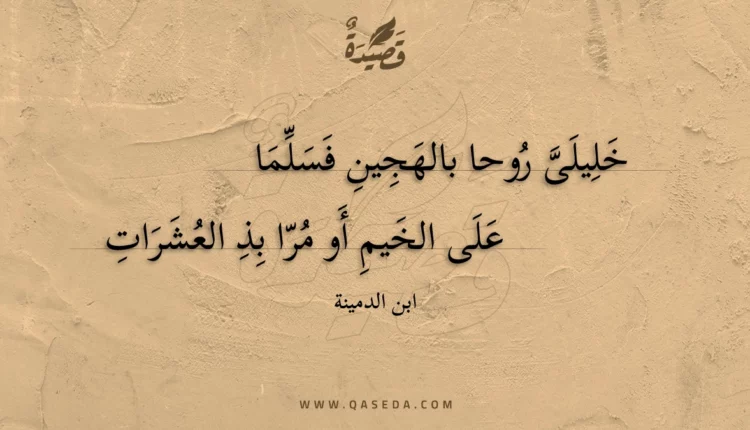 قَصِيْدَةٌ
خَلِيلَىَّ رُوحا بالهَجِينِ فَسَلِّمَا
عَلَى الخَيمِ أَو مُرّا بِذِ العُشَرَاتِ
ابن الدمينة
WWW.QASEDA.COM